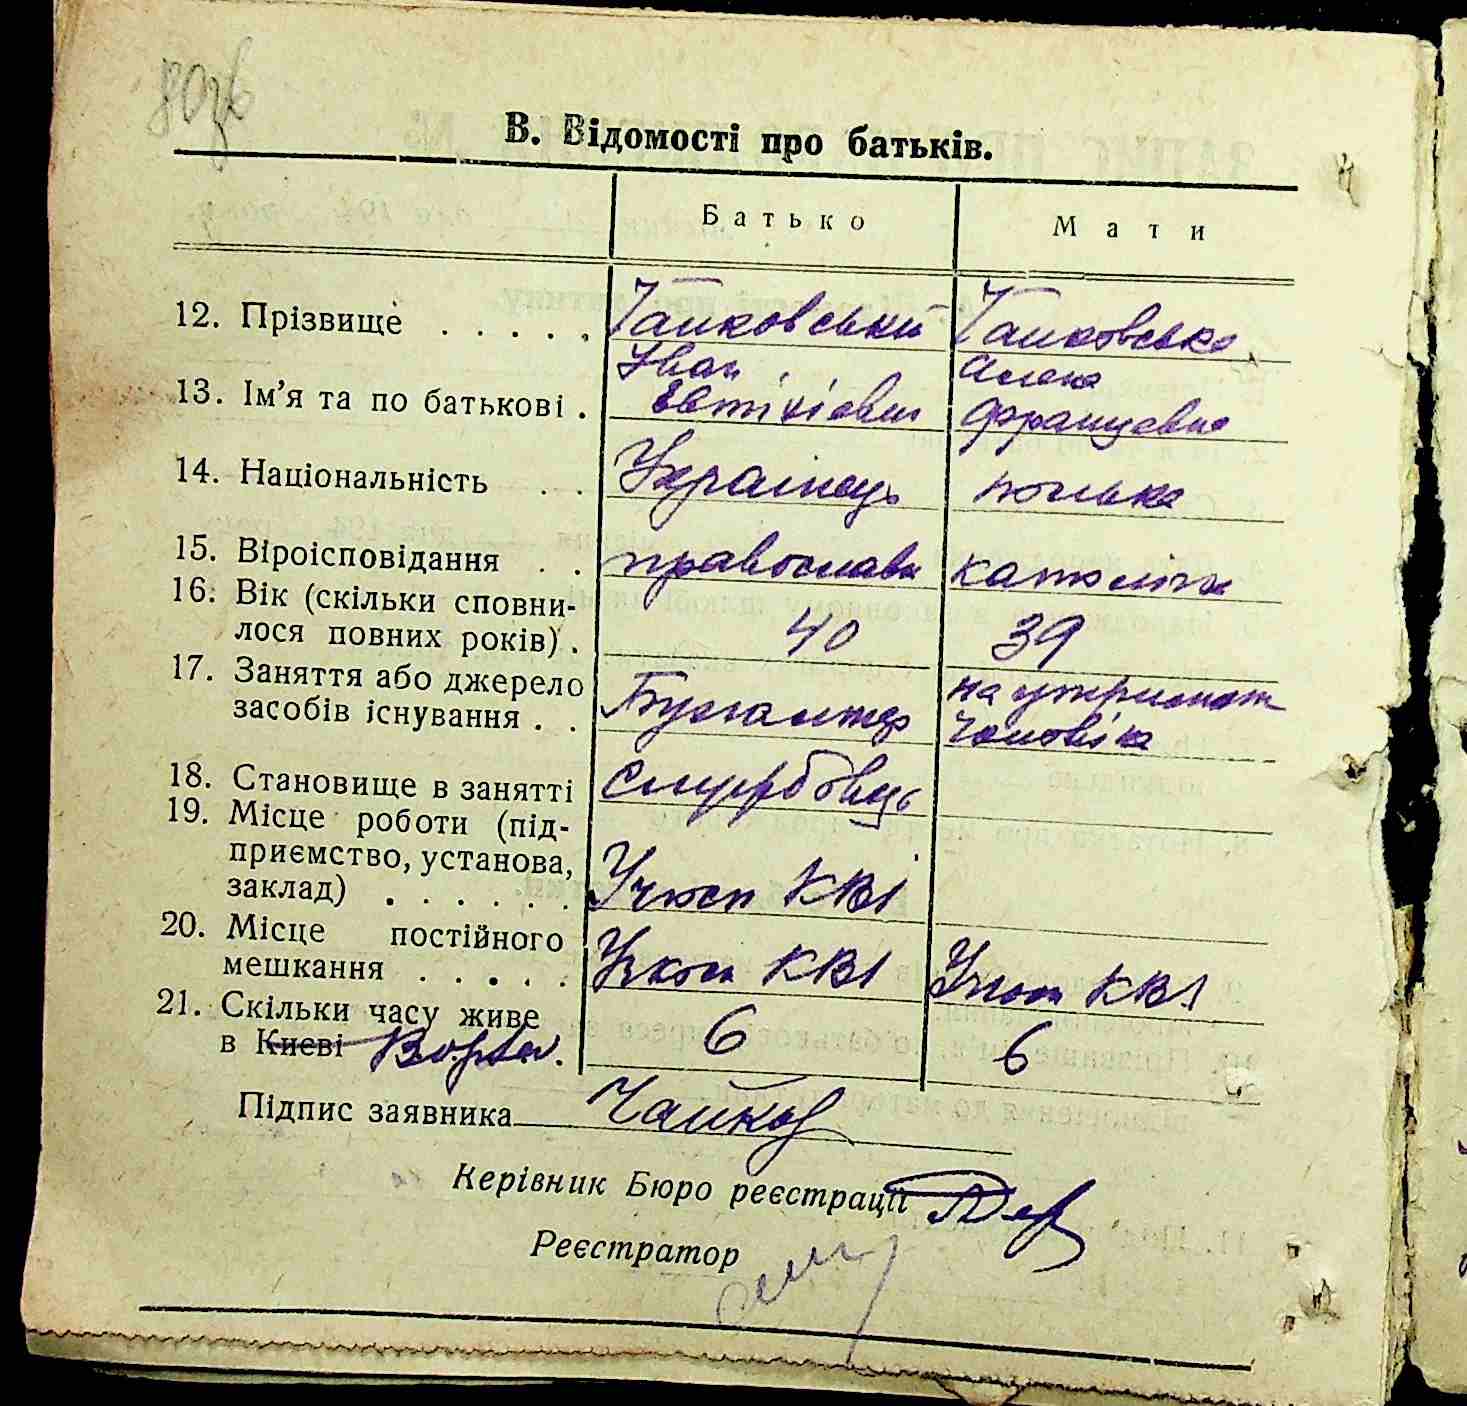 В. Відомості про батьків.
Батько Мати
12. Прізвище . . . . . Чайковський Чайковська
Іван Алена
13. Ім'я та по батькові . Євтіхіович Францовна
14. Національність . . Українець полька
15. Віроісповідання . . православн католичка
16. Вік (скільки сповни-
лося повних років) . 40 39
17. Заняття або джерело на утриманні
засобів існування . . Бухгалтер чоловіка
18. Становище в занятті Службовець
19. Місце роботи (під-
приємство, установа,
заклад) . . . . . . Учхоз КВІ
20. Місце постійного
мешкання . . . . . Учхоз КВІ Учхоз КВІ
21. Скільки часу живе
в Києві 6 6
Підпис заявника Чайков
Керівник Бюро реєстрації
Реєстратор